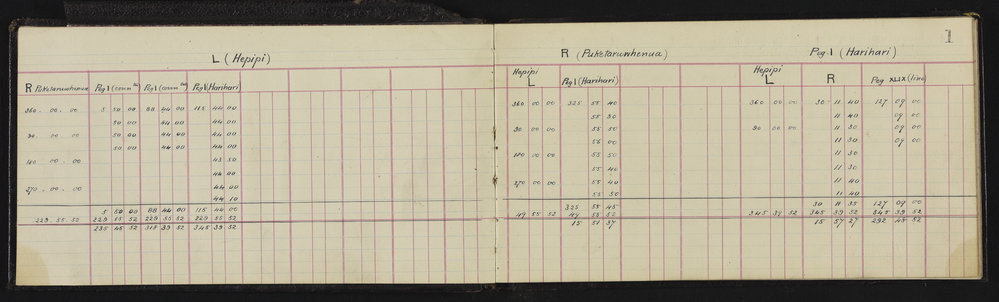 1
L (Hepipi)
R Puketaruwhenua Peg 1 (conn Peg 1 (conn Peg 1 (Harihari)
360 . 00 . 00 5 50 00 88 44 00 115 44 00
50 00 44 00 44 00
90 . 00 00 50 00 44 00 44 00
50 00 44 00 44 00
180 00 . 00 43 50
44 00
270 . 00 . 00 44 00
44 10
5 50 00 88 44 00 115 44 00
229 . 55 . 52 229 55 52 229 55 52 229 55 52
235 45 52 318 39 52 345 39 52
R (Puketaruwhenua)
Hepipi
L Peg 1 (Harihari)
360 00 00 325 55 40
55 30
90 00 00 55 50
56 00
180 00 00 55 50
55 40
270 00 00 55 40
55 50
325 55 45
49 55 52 49 55 52
15 51 37
Peg 1 (Harihari)
Hepipi
L R Peg XLIX (line)
360 00 00 30 11 40 127 09 00
11 40 09 00
90 00 00 11 30 09 00
11 30 09 00
11 30
11 30
11 40
11 40
30 11 35 127 09 00
345 39 52 345 39 52 345 39 52
15 57 27 292 48 52